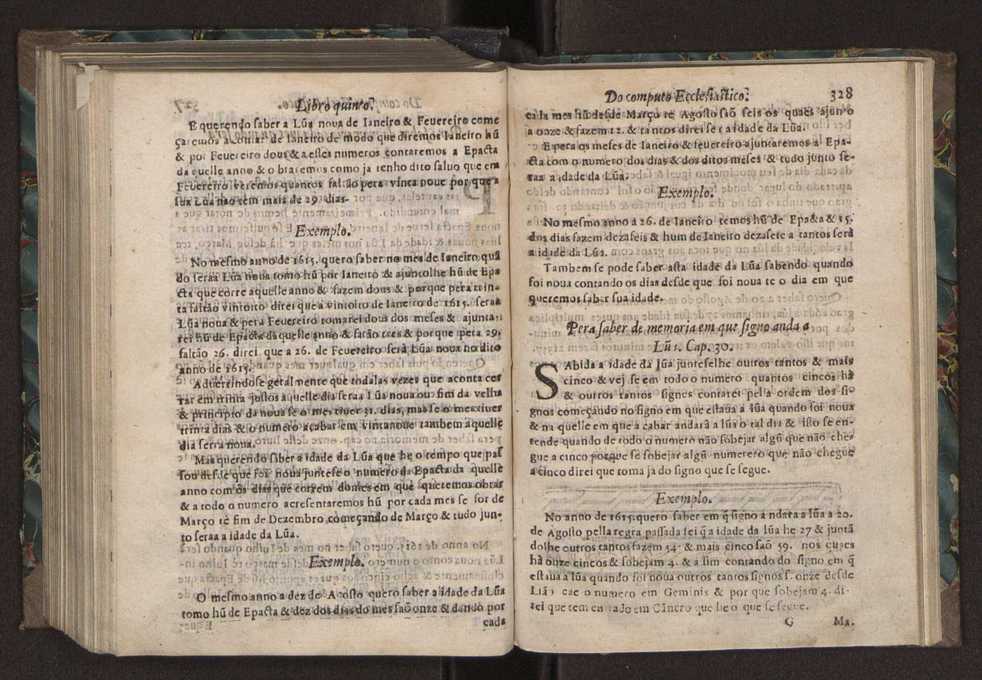 Libro quinto.
E querendo saber a Lũa noua de Ianeiro & Feuereiro come
çaremos a contar de Ianeiro de modo que diremos Ianeiro hũ
& por Feuereiro dous & a estes numeros contaremos a Epacta
da quelle anno & o btaremos como ja tenho dito saluo que em
Feuereiro veremos quantos faltão pera vinta noue por que a
sua Lũa não tem mais de 29. dias.
Exemplo.
No mesmo anno de 1615. quero saber no mes de Ianeiro quã
do seraa Lũa noua tomo hũ por Ianeiro & ajuntolhe hũ de Epa
cta que corre aquelle anno & fazem dous & porque pera trin-
ta faltão vintoito direi que a vintoito de Ianeiro de 1615. seraa
Lũa noua & pera Feuereiro tomarei dous dos meses & ajunta-
rei hũ de Epacta da quelle anno & farão tres & porque pera 29.
faltão 26. direi que a 26. de Feuereiro serà Lũa noua no dito
anno de 1615.
Aduertindose geralmente que todalas vezes que aconta cer
rar em trinta justos a quelle dia seraa Lũa noua ou fim da velha
& principio da noua se o mes tiuer 31. dias, mas se o mes tiuer
trinta dias & o numero acabar em vintanoue tambem aquelle
dia serra noua.
Mas querendo saber a idade da Lũa que he o tempo que pas
sou desde que foi noua juntese o numero da Epacta da quelle
anno com os dias que correm do mes em que queremos obrar
& a todo o numero acresentaremos hũ por cada mes se for de
Março tè fim de Dezembro começando de Março & tudo jun-
to seraa a idade da Lũa.
Exemplo.
O mesmo anno a dez de Agosto quero saber a idade da Lũa
tomo hũ de Epacta & dez dos dias do mes saõ onze & dando por
cada
Do computo Ecclesiastico. 328
cada mes hũ desde Março tè Agosto saõ seis os quaes ajunto
a onze & fazem 17. & tantos direi se ra idade da Lũa.
E pera os meses de Ianeiro & feuereiro ajuntaremos a Epa-
cta com o numero dos dias & dos ditos meses & tudo junto se-
raa a idade da Lũa.
Exemplo.
No mesmo anno a 26. de Ianeiro temos hũ de Epacta & 15.
dos dias fazem dezaseis & hum de Ianeiro dezasete a tantos serà
a idade da Lũa.
Tambem se pode saber asta idade da Lũa sabendo quando
foi noua contando os dias desde que foi noua tè o dia em que
queremos saber sua idade.
Pera saber de memoria em que signo anda a
Lũa. Cap. 30.
SAbida a idade da lũa junteselhe outros tantos & mais
cinco & vej se em todo o numero quantos cincos hà
& outros tantos signos contarei pela ordem dos si-
gnos começando no signo em que estaua a lũa quando foi noua
& na quelle em que a cabar andarà a lũa o tal dia & isto se en-
tende quando de todo o numero não sobejar algũ que não che-
gue a cinco porque se sobejar algũ numerero que não chegue
a cinco direi que toma ja do signo que se segue.
Exemplo.
No anno de 1615. quero saber em q̃ signo andara a lũa a 20.
de Agosto pella regra passada sei q̃ a idade da lũa he 27 & juntã
dolhe outros tantos fazem 54. & mais cinco saõ 59. nos quaes
hà onze cincos & sobejam 4. & a sim contando do signo em q̃
estaua a lũa quando foi noua outros tantos signos s. onze desde
Liã caе o numero em Geminis & por que sobejam 4. di-
rei que tem entrado em Câncro que he o que se segue.
G Ma.